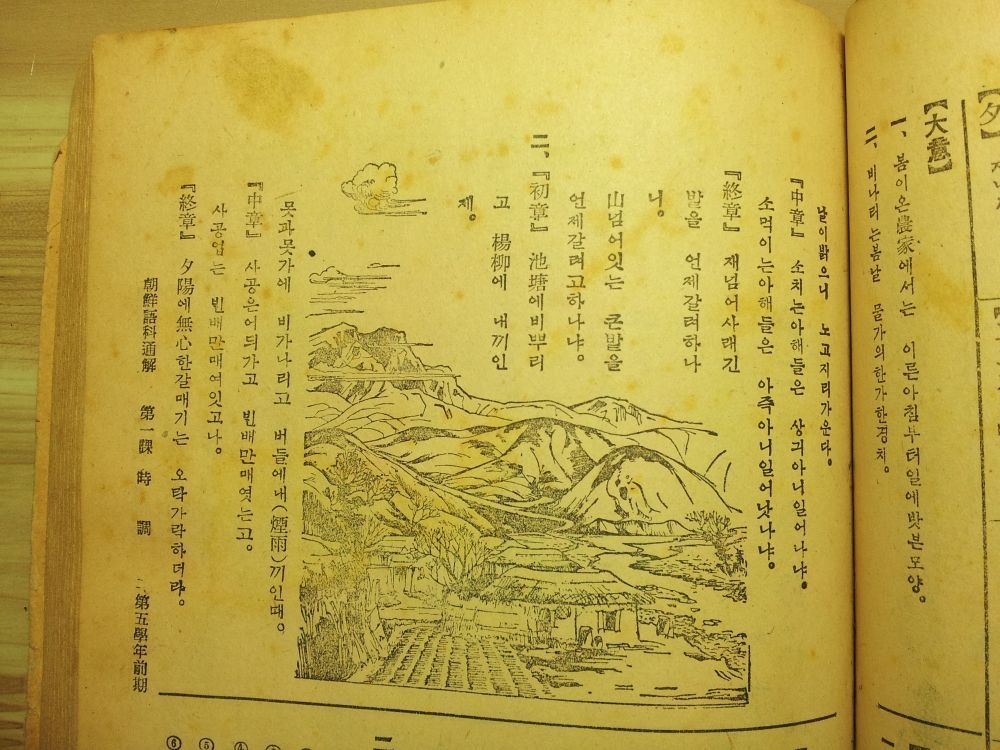 【夕】
【大意】
一、 봄이온農家에서는 이른아침부터일에밧븐모양。
二、 비나리는봄날 물가의한가한경치。
날이밝으니 노고지리가운다。
『中章』 소치는아해들은 상긔아니일어나냐。
소먹이는아해들은 아즉아니일어낫나냐。
『終章』 재넘어사래긴
밭을 언제갈려하나
니。
山넘어잇는 큰밭을
언제갈려고하나냐。
二、
『初章』 池塘에비뿌리
고 楊柳에 내끼인
제。
못과못가에 비가나리고 버들에내(煙雨)끼인때。
『中章』 사공은어듸가고 빈배만매엿는고。
사공업는 빈배만매여잇고나。
『終章』 夕陽에無心한갈매기는 오락가락하더라。
朝鮮語科通解 第一課 時調 第五學年前期
二
④
⑤
⑥